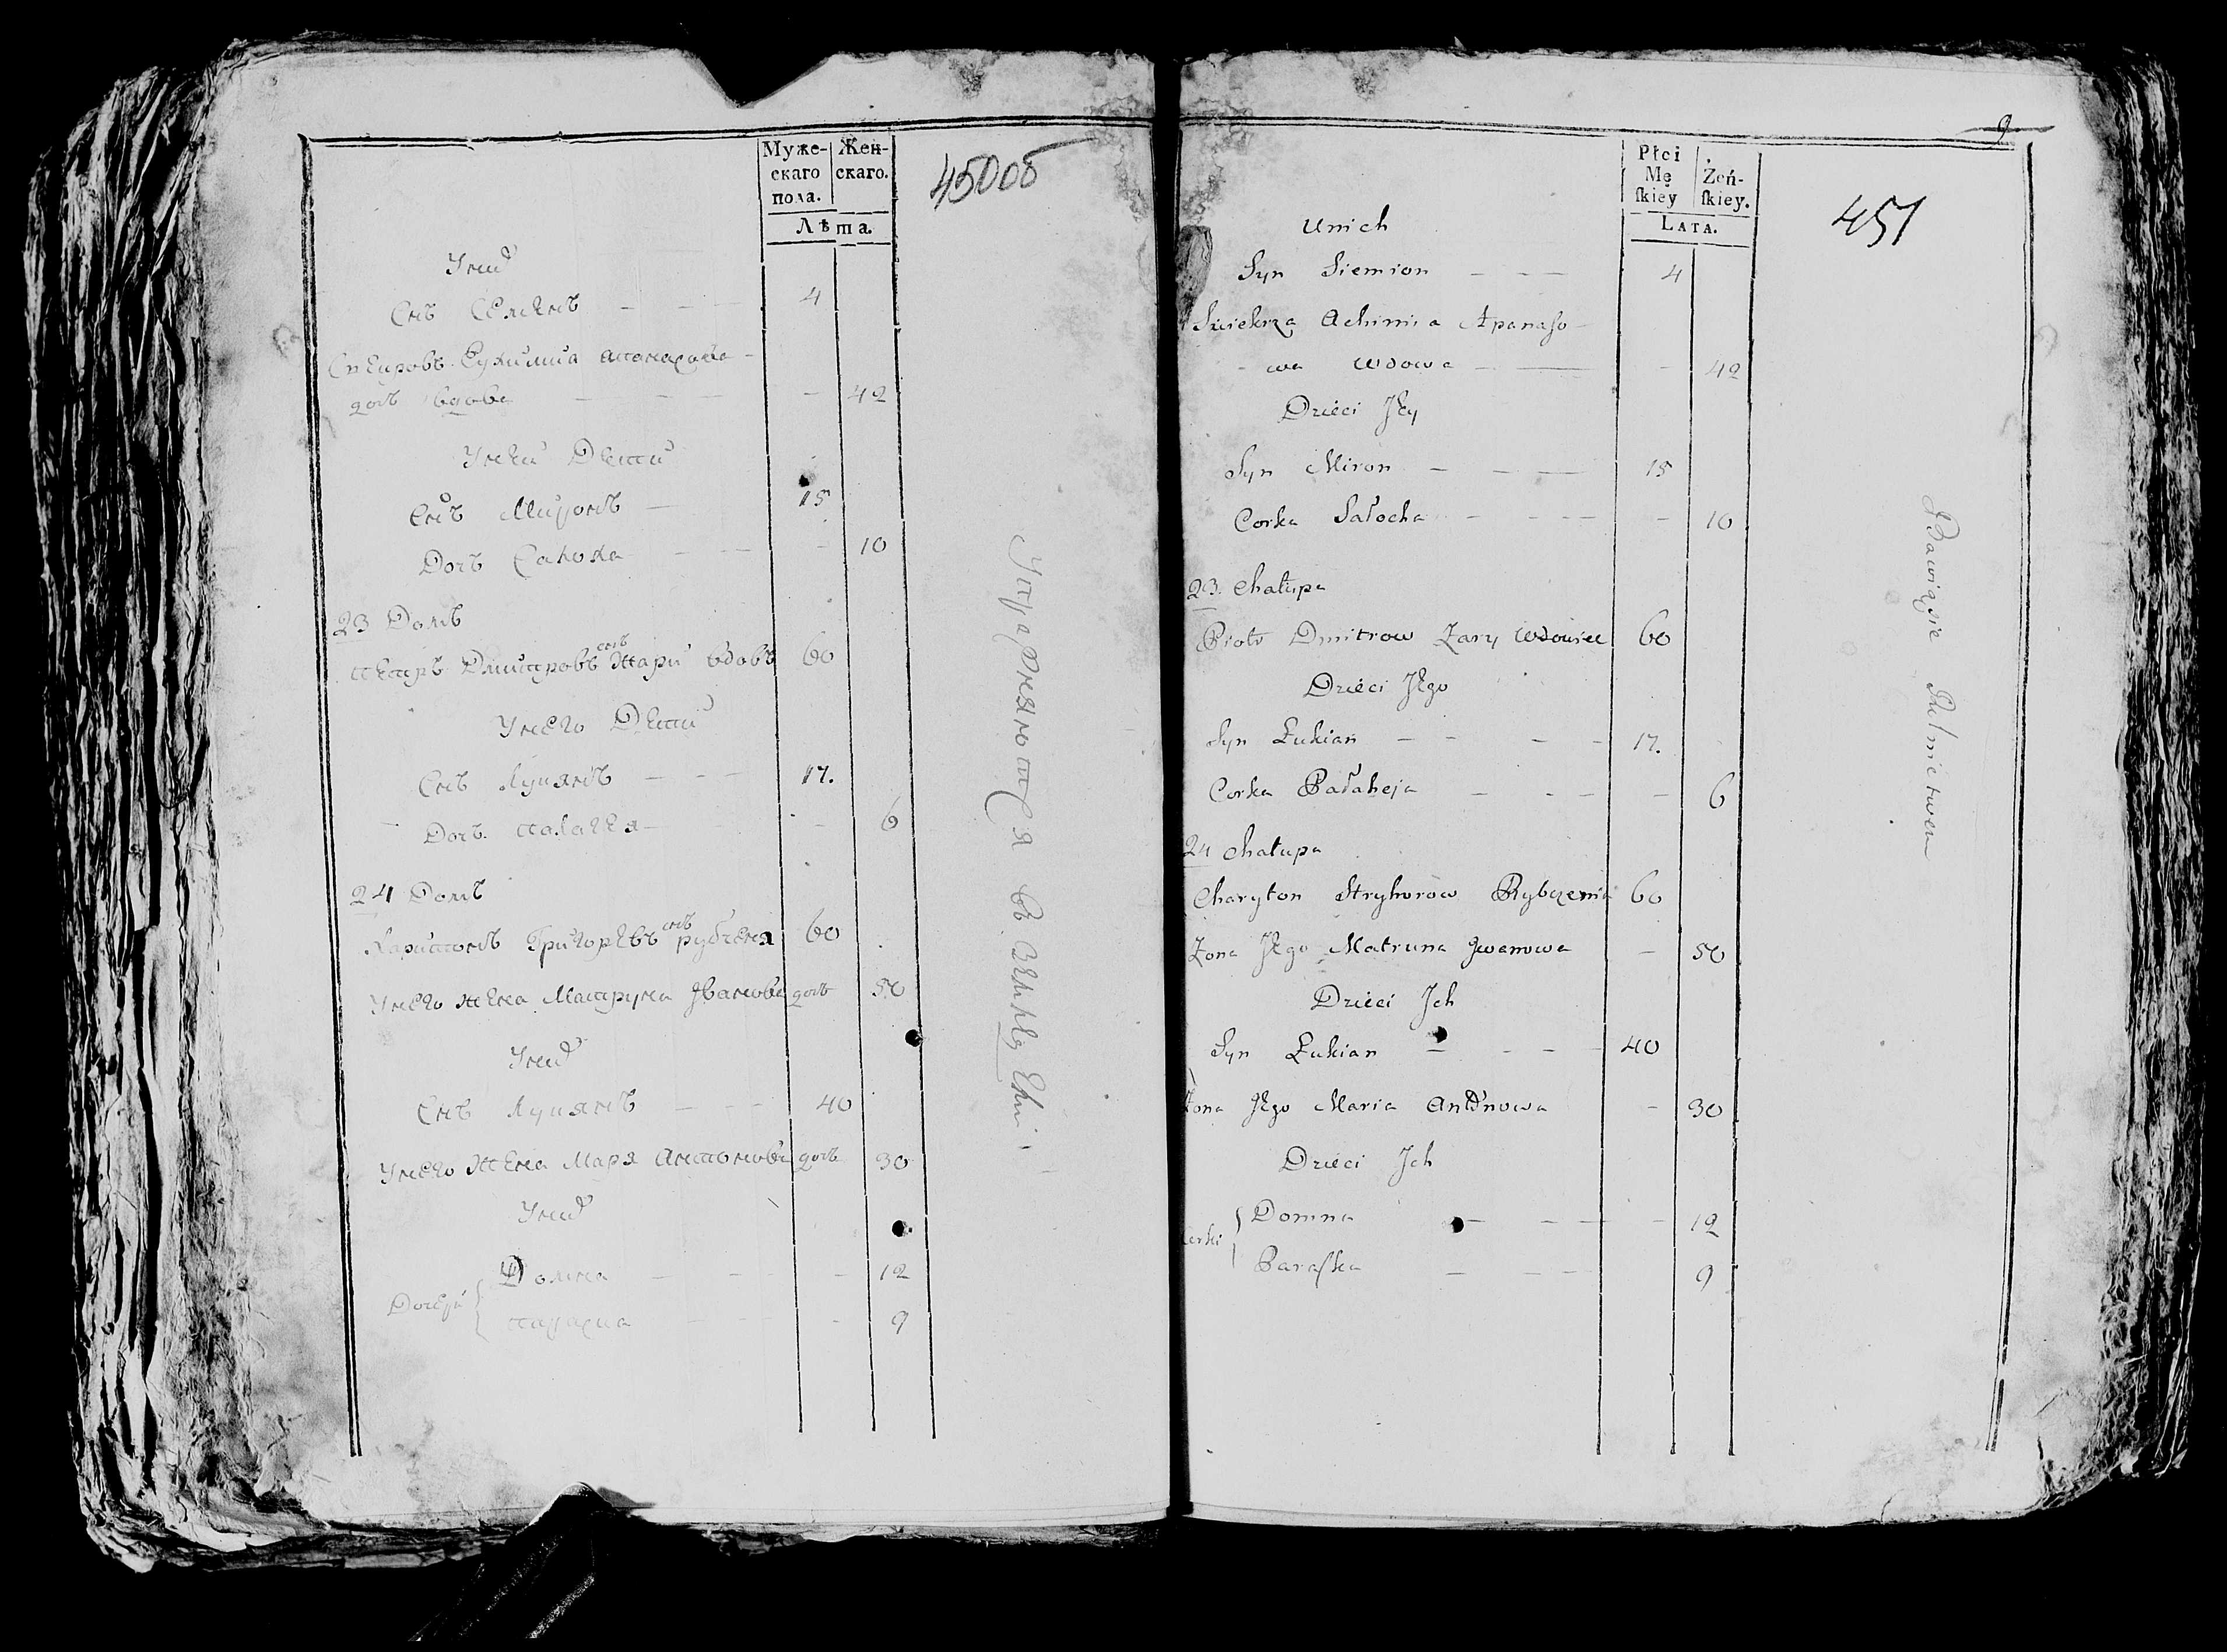 Муже-
скаго
пола.
Жен-
скаго.
Лѣта.
450об
Унид
Снъ Семенъ — — — 4
Свекровь Ефимиа Апанасова
дочь вдова — — — 42
Унеи Дети
Снъ Миронъ — 15
Дочь Салоха — — — 10
23 Домъ
Петръ Дмитровъ снъ Жари вдовъ 60
Унего Дети
Снъ Лукянъ — — — 17.
Дочь Палагея — — 6
24 Домъ
Харитонъ Григоревъ снъ рубченя 60
Унего жена Матруна Іванова дочь 50
Унид
Снъ Лукянъ — — — 40
Унего Жена Маря Антонова дочь 30
Унид
Дочери { Домна — — — 12
Параска — — — 9
Упражняются в земледелии
9
Płci
Mę
ſkiey
Żeń-
ſkiey.
LATA.
451
Unich
Syn Siemion — — — 4
Swiekrza Achimia Apanaſo-
wa Wdowa — — — 42
Dzieci Jey
Syn Miron — — — 15
Corka Sałocha — — — — 10
23. Chałupa
Piotr Dmitrow Żary Wdowiec 60
Dzieci Jego
Syn Łukian — — — — 17.
Corka Pałaheja — — — — 6
24 Chałupa
Charyton Hryhorow Rybczenia 60
Żona Jego Matruna Jwanowa — 50
Dzieci Jch
Syn Łukian — — — — 40
Żona Jego Maria Antonowa — 30
Dzieci Jch
Corki { Domna — — — — 12
Paraſka — — — 9
Bawiąsie Rolnictwem